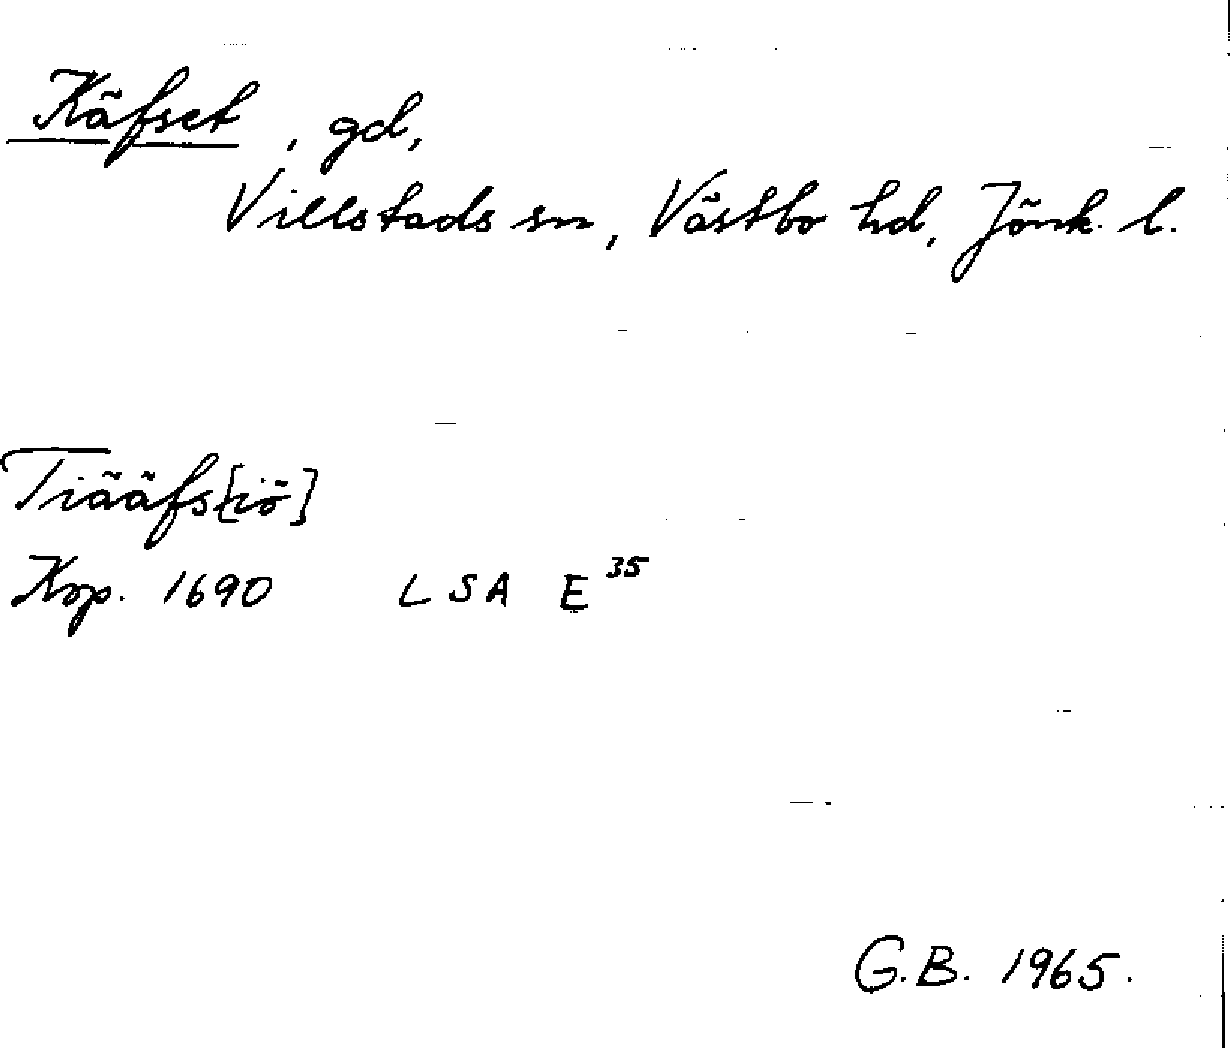 Käfset, gd,
Villstads sn, Västbo hd, Jönk. l.
Tiääfs[iö]
Kop. 1690 LSA E 35
G.B. 1965.